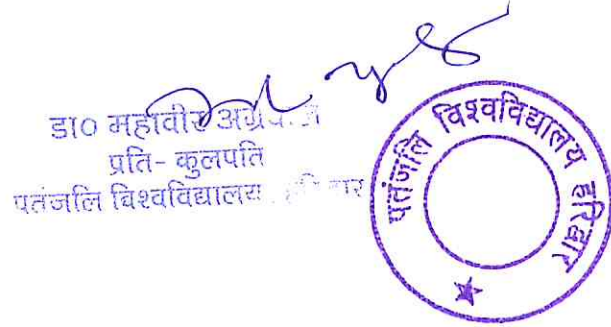 डा० महावीर अग्रवाल
प्रति- कुलपति
पतंजलि विश्वविद्यालय, हरिद्वार
पतंजलि विश्वविद्यालय हरिद्वार